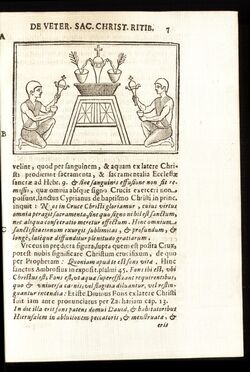 DE VETER. SAC. CHRIST. RITIB. 7
A
B
veline, quod per sanguinem, & aquam ex latere Chri-
sti prodierint sacramenta, & sacramentalia Ecclesiæ
sanctæ ad Hebr. 9. & sine sanguinis effusione non fit re-
missio, qua omnia absque signo Crucis exerceri non
possunt, sanctus Cyprianus de baptismo Christi in princ.
inquit: Nos in Cruce Christi gloriamur, cuius vertus
omnia peragit sacramenta, sine quo signo nihil est sanctum,
nec aliqua consecratio meretur effectum. Hinc omnium
sanctificationum exurgit sublimitas, & profundum, &
longè, latèque diffunditur plenitudo gratiarum.
Vrceus in prædicta figura, supra quem est posita Crux,
potest nobis significare Christum crucifixum, de quo
per Prophetam: Quoniam apud te est fons vitæ. Hinc
sanctus Ambrosius in exposit. psalmi 45. Fons ibi est, vbi
Christus est, quod aqua superesse soleant requirentibus,
quo & vniuersi carnis, vel aliqua distinguitur, vel restin-
guuntur incendia: Est iste Diuinus Fons exlatere Christi
fuit iam ante pronunciatus per Zachariam cap. 13.
In die illa erit fons patens domui Dauid, & habitatoribus
Hierusalem in ablutionem peccatoris, & menstruatæ, &
erit